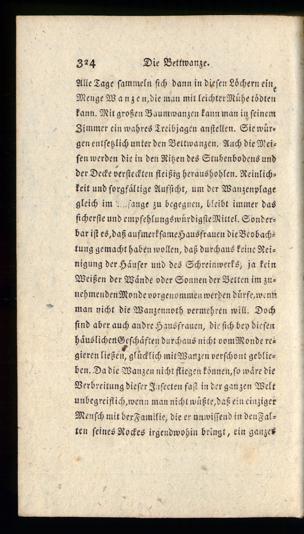 324 Die Bettwanze.
Alle Tage sammeln sich dann in diesen Löchern eine
Menge Wanzen, die man mit leichter Mühe tödten
kann. Mit großen Baumwanzen kann man in seinem
Zimmer ein wahres Treibjagen anstellen. Sie wür-
gen entsetzlich unter den Bettwanzen. Auch die Mei-
sen werden die in den Ritzen des Stubenbodens und
der Decke versteckten fleißig heraushohlen. Reinlich-
keit und sorgfältige Aufsicht, um der Wanzenplage
gleich im zu begegnen, bleibt immer das
sicherste und empfehlungswürdigste Mittel. Sonder-
bar ist es, daß aufmerksame Hausfrauen die Beobach-
tung gemacht haben wollen, daß durchaus keine Rei-
nigung der Häuser und des Schreinwerks, ja kein
Weißen der Wände oder Sonnen der Betten im zu-
nehmenden Monde vorgenommen werden dürfe, wenn
man nicht die Wanzennoth vermehren will. Doch
sind aber auch andre Hausfrauen, die sich bey diesen
häuslichen Geschäften durchaus nicht vom Monde re-
gieren ließen, glücklich mit Wanzen verschont geblie-
ben. Da die Wanzen nicht fliegen können, so wäre die
Verbreitung dieser Insecten fast in der ganzen Welt
unbegreiflich, wenn man nicht wüßte, daß ein einziger
Mensch mit der Familie, die er unwissend in den Fal-
ten seines Rockes irgendwohin bringt, ein ganzes